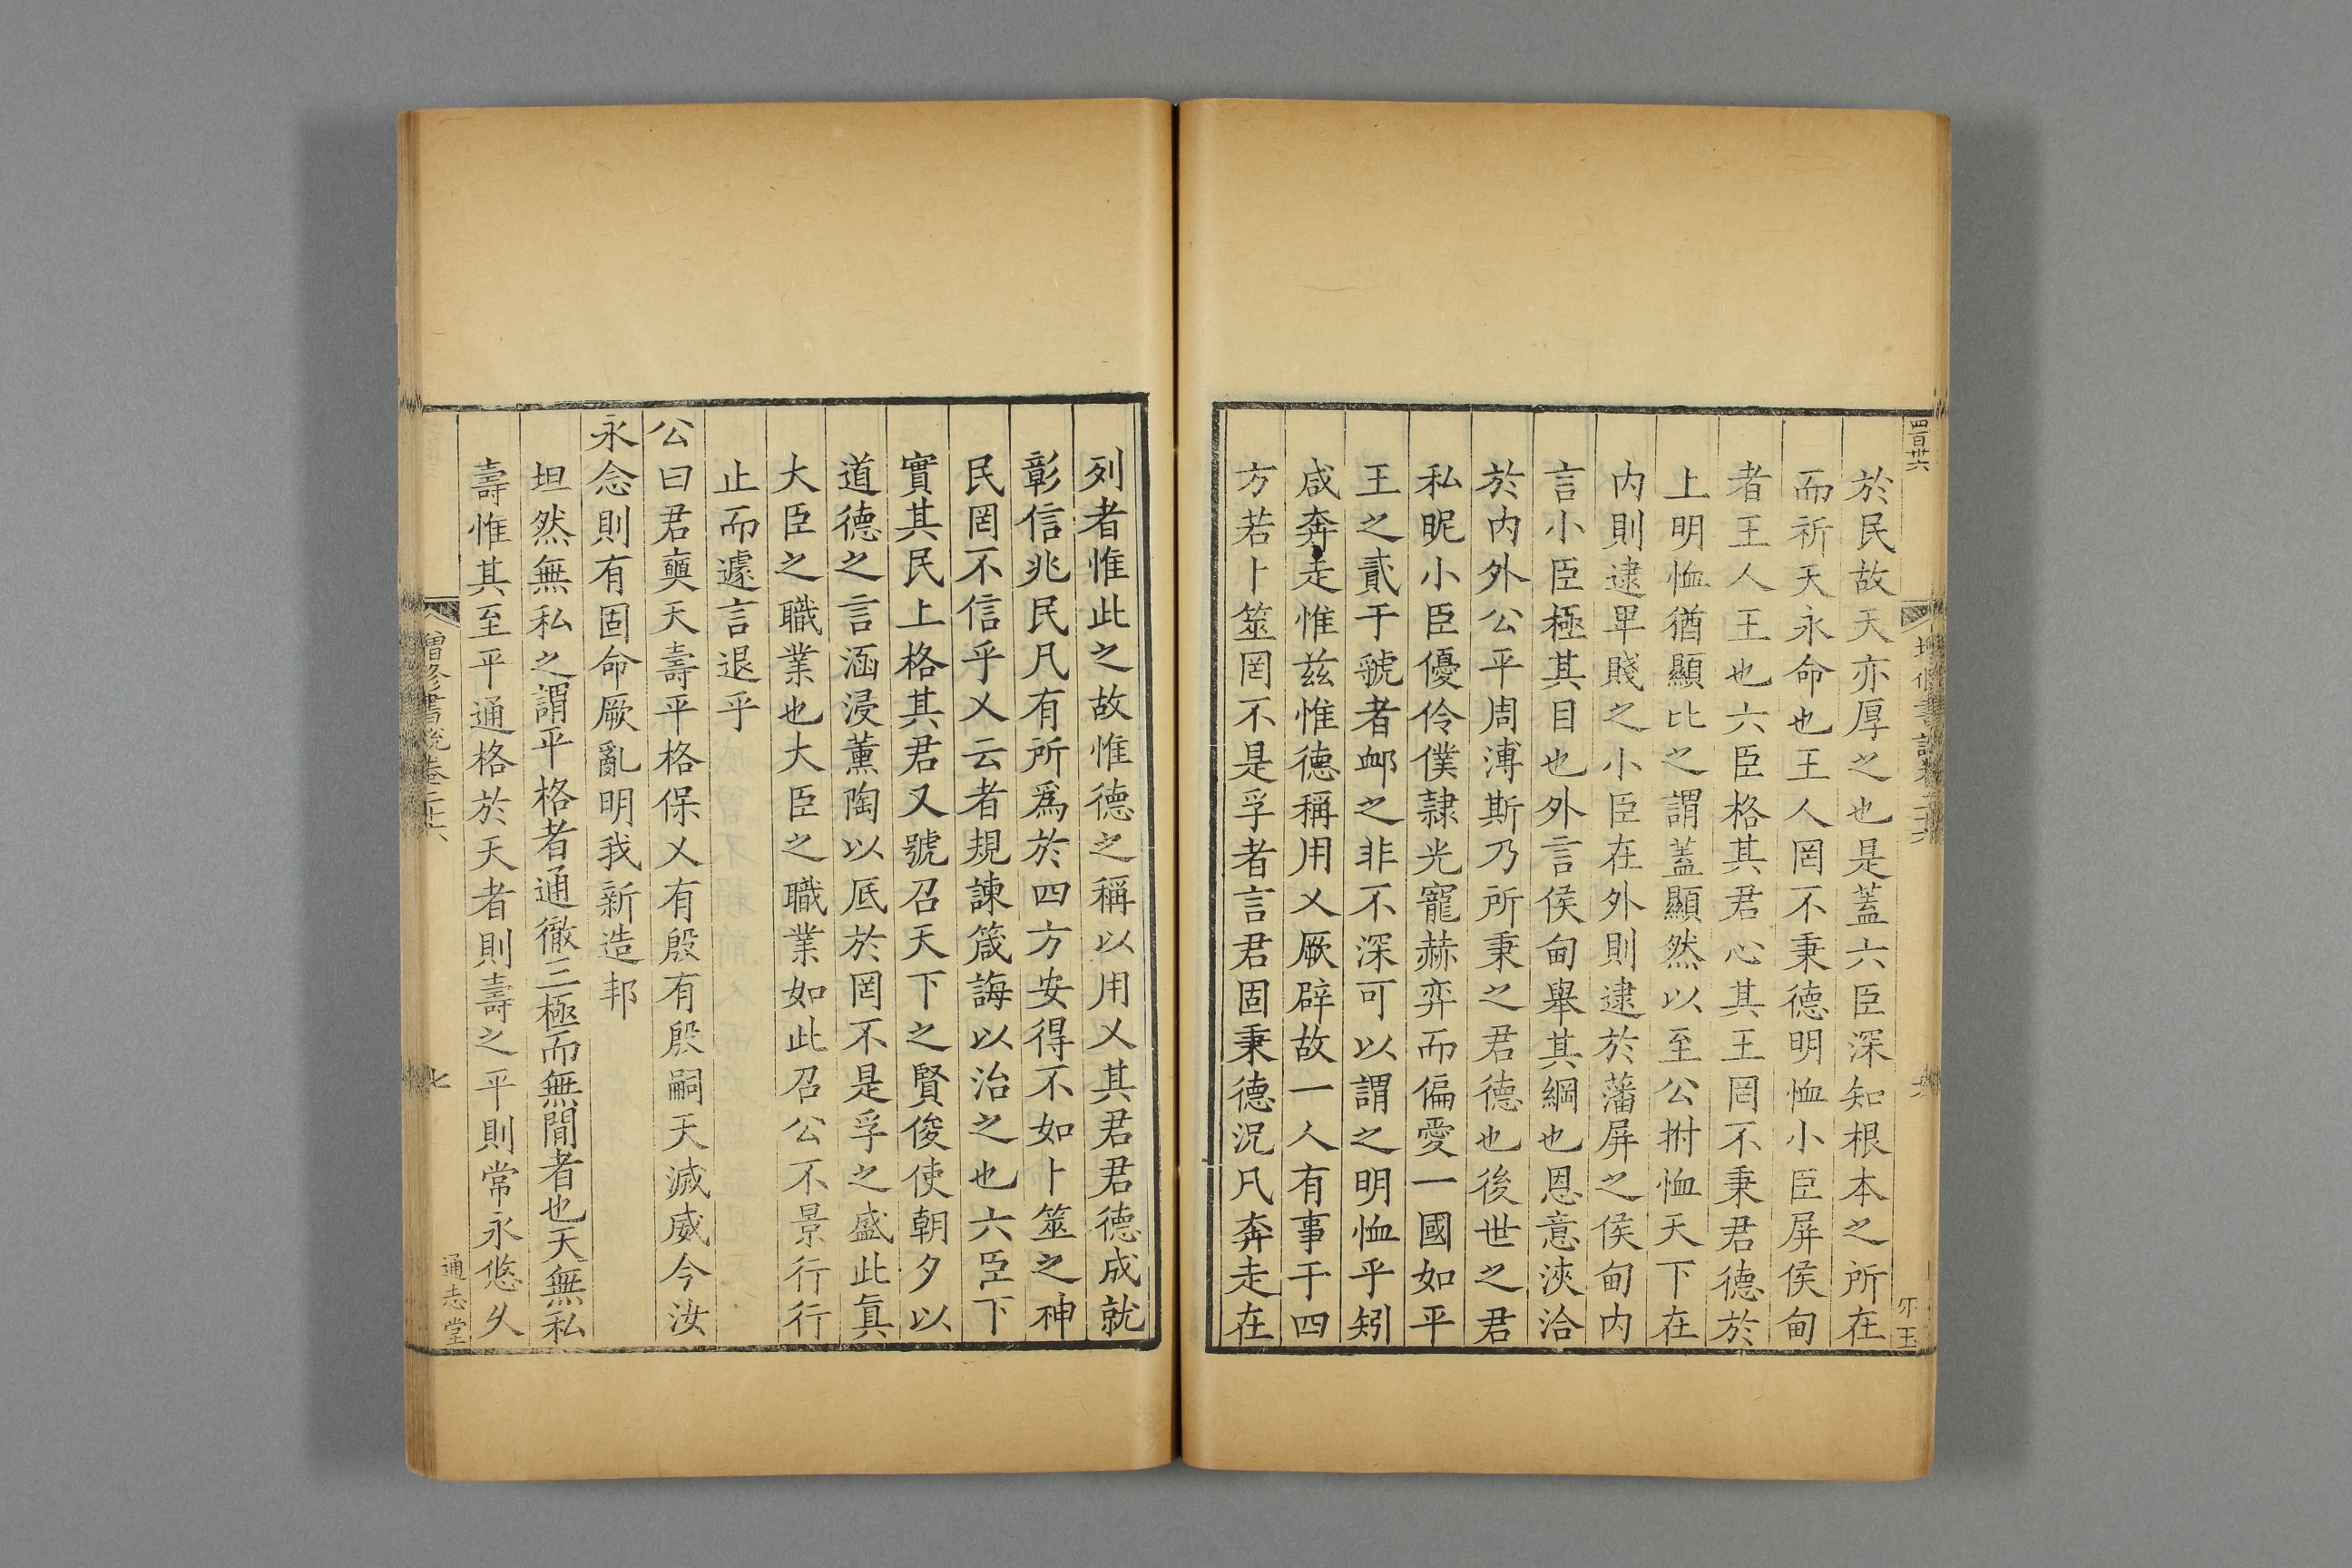 四百廿六
於民故天亦厚之也是蓋六臣深知根本之所在
而祈天永命也王人罔不秉德明恤小臣屏侯甸
者王人王也六臣格其君心其王罔不秉君德於
上明恤猶顯比之謂蓋顯然以至公拊恤天下在
内則逮畢賤之小臣在外則逮於藩屏之侯甸内
言小臣極其目也外言侯甸舉其綱也恩意浹洽
於内外公平周溥斯乃所秉之君德也後世之君
私昵小臣優伶僕隷光寵赫弈而偏愛一國如平
王之貳于虢者卹之非不深可以謂之明恤乎矧
咸奔走惟兹惟德稱用乂厥辟故一人有事于四
方若卜筮罔不是孚者言君固秉德況凡奔走在
列者惟此之故惟德之稱以用乂其君君德成就
彰信兆民凡有所爲於四方安得不如卜筮之神
民罔不信乎乂云者規諫箴誨以治之也六臣下
實其民上格其君又號召天下之賢俊使朝夕以
道德之言涵浸薰陶以厎於罔不是孚之盛此眞
大臣之職業也大臣之職業如此召公不景行行
止而遽言退乎
公曰君奭天壽平格保乂有殷有殷嗣天滅威今汝
永念則有固命厥亂明我新造邦
坦然無私之謂平格者通徹三極而無閒者也天無私
壽惟其至平通格於天者則壽之平則常永悠久
增修書說卷二十六
七
通志堂